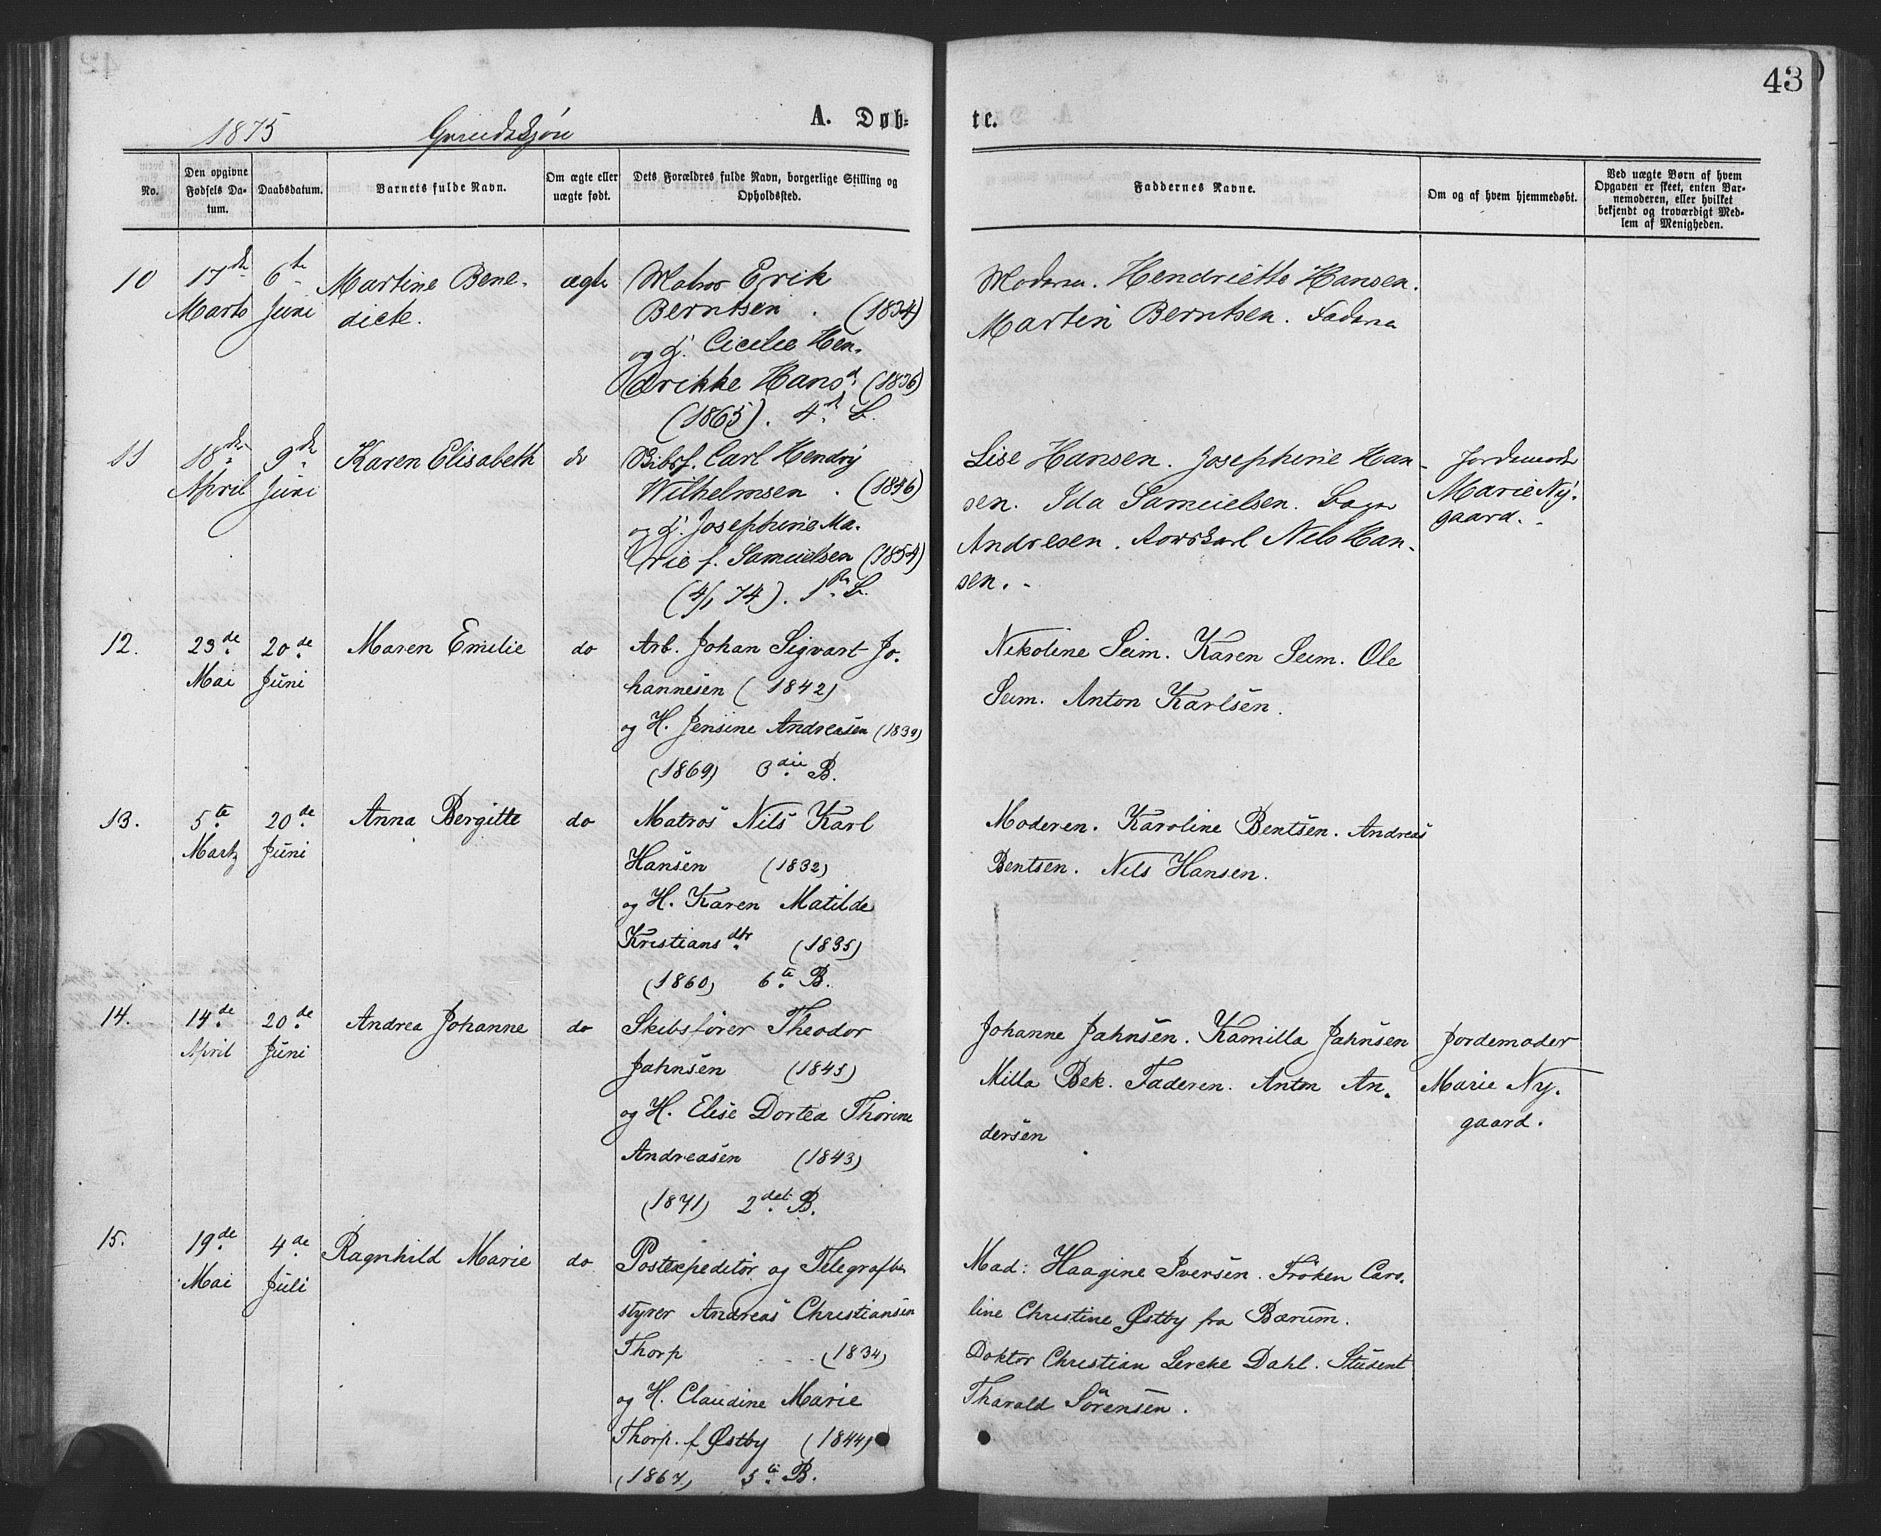 43
1875 Grundesjön A. Døb- te.
No.
Den opgivne Fødsels Datum.
Daabsdatum.
Barnets fulde Navn.
Om ægte eller uægte født.
Dets Forældres fulde Navn, borgerlige Stilling og Opholdssted.
Faddernes Navne.
Om og af hvem hjemmedøbt.
Ved uægte Børn af hvem Opgaven er skeet, enten Barnemoderen, eller hvilket bekjendt og troværdigt Medlem af Menigheden.
10 17de Marts 6te Juni Martine Bene-
dicte.
ægte
Matros Erik
Berntsen . (1834)
og H. Cicelie Hen-
drikke Hansd. (1836)
(1865). 4de B.
Moderen. Hendriette Hansen.
Martin Berntsen. Faderen
11 18de April 9de Juni Karen Elisabeth do
Skibsf. Carl Hendry
Wilhelmsen . (1846)
og H. Josephine Ma-
rie f. Samuelsen (1854)
(4/1 74). 1ste B.
Lise Hansen. Josephine Han-
sen. Ida Samuelsen.
Andresen. Nils Han-
sen. -
Jordemoder
Marie Ny-
gaard. -
12. 23de Mai 20de Juni Maren Emilie do
Arb. Johan Sigvart Jo-
hannesen (1842)
og H. Jensine Andreasen (1839)
(1869) 3die B.
Nikoline Seim. Karen Seim. Ole
Seim. Anton Karlsen.
13. 5te Martz 20de Juni Anna Bergitte do
Matros Nils Karl
Hansen (1832)
og H. Karen Matilde
Kristiansdtr. (1835)
(1860) 6te B.
Moderen. Karoline Bentsen. Andreas
Bentsen. Nils Hansen.
14. 14de April 20de Juni Andrea Johanne do
Skibsfører Theodor
Jahnsen (1845)
og H. Elise Dortea Thorine
Andreasen (1843)
(1871) 2det B.
Johanne Jahnsen. Kamilla Jahnsen
Milla Bek. Faderen. Anton An-
dersen
Jordemoder
Marie Ny-
gaard.
15. 19de Mai 4de Juli Ragnhild Marie do
Postexpeditør og Telegrafbe-
styrer Andreas Christiansen
Thorp (1834)
og H. Claudine Marie
Thorp f. Østby (1844)
(1867) 5te B.
Mad: Haagine Iversen. Frøken Caro-
line Christine Østby fra Bærum.
Doktor Christian Lercke Dahl. Student
Tharald Sörensen.